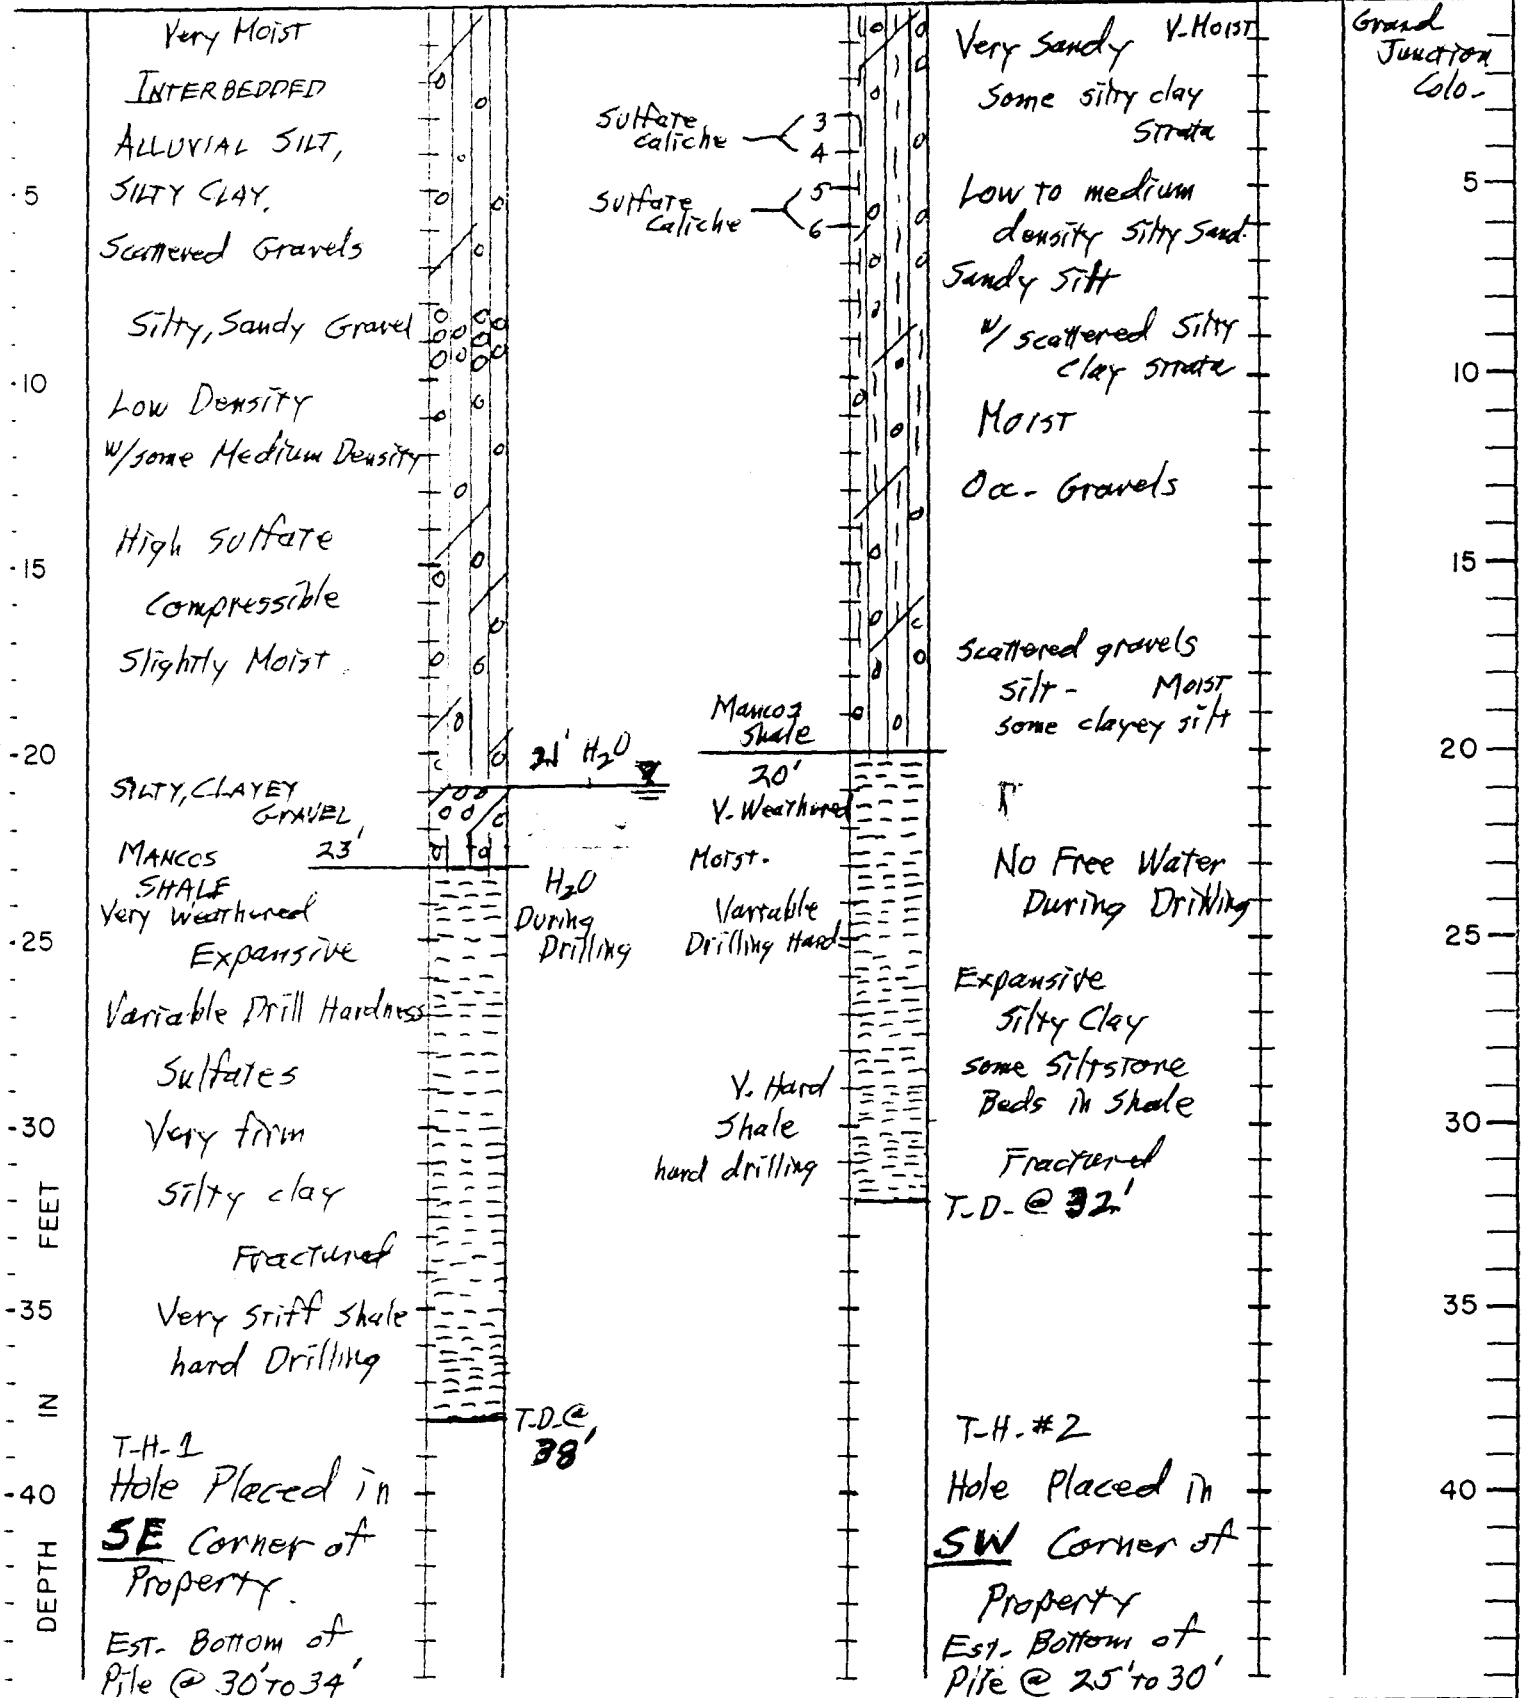 Very Moist
INTERBEDDED
ALLUVIAL SILT,
SILTY CLAY,
Scattered Gravels
Silty, Sandy Gravel
Low Density
w/some Medium Density
High sulfate
Compressible
Slightly Moist
SILTY, CLAYEY
GRAVEL
MANCOS 23'
SHALE
Very Weathered
Expansive
Variable Drill Hardness
Sulfates
Very firm
Silty clay
Fractured
Very stiff shale
hard Drilling
T-H-1
Hole Placed in
SE Corner of
Property.
Est. Bottom of
Pile @ 30' to 34'
21' H2O
H2O
During
Drilling
T.D. @
38'
Sulfate
caliche
3
4
Sulfate
caliche
5
6
Mancos
Shale
20'
V. Weathered
Moist.
Variable
Drilling Hard-
V. Hard
Shale
hard drilling
Very Sandy V-Moist
Some silty clay
Strata
Low to medium
density Silty Sand.
Sandy Silt
w/ scattered Silty
Clay strata
Moist
Occ- Gravels
Scattered gravels
silt - Moist
some clayey silt
No Free Water
During Drilling
Expansive
Silty Clay
some Siltstone
Beds in Shale
Fractured
T.D. @ 32'
T-H. #2
Hole Placed in
SW Corner of
Property
Est. Bottom of
Pile @ 25' to 30'
Grand
Junction
Colo.
5
10
15
20
25
30
35
40
DEPTH IN FEET
5
10
15
20
25
30
35
40